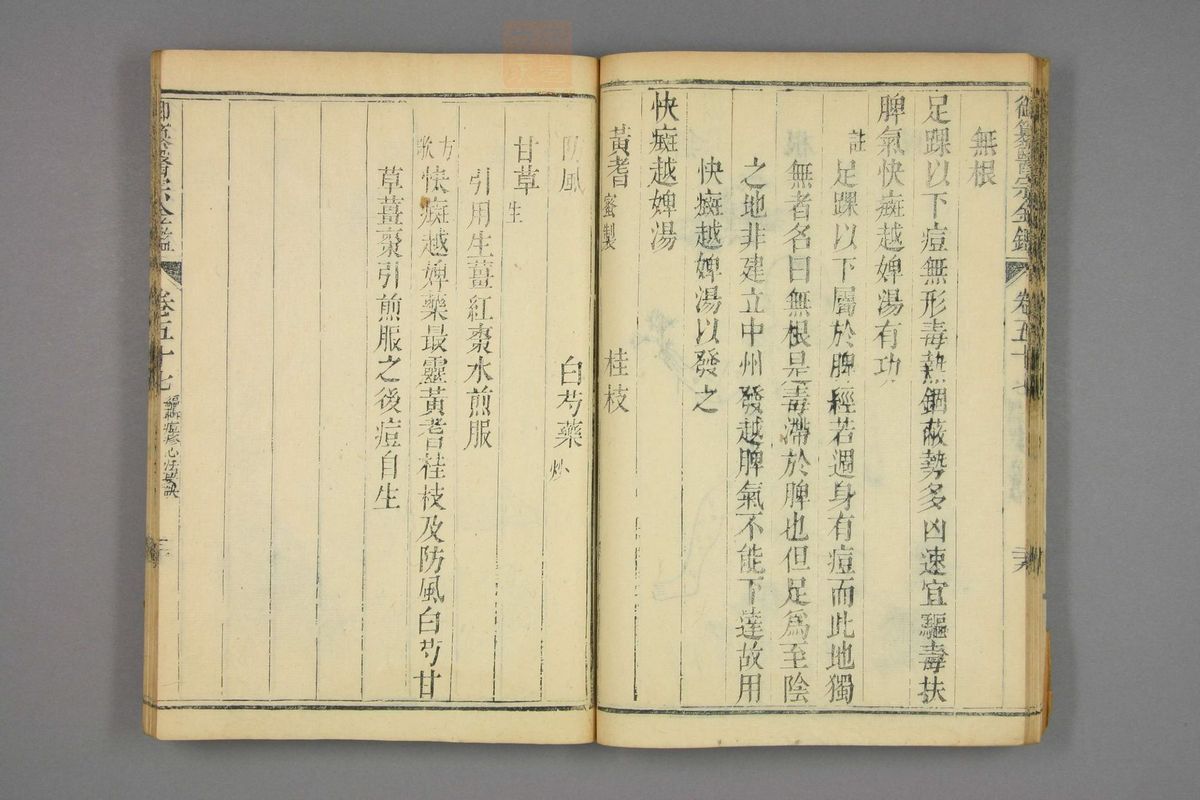 御纂醫宗金鑑 卷五十七
無根
足踝以下痘無形毒熱錮蔽勢多凶速宜驅毒扶
脾氣快癍越婢湯有功
註足踝以下屬於脾經若週身有痘而此地獨
無者名曰無根是毒滯於脾也但足爲至陰
之地非建立中州發越脾氣不能下達故用
快癍越婢湯以發之
快癍越婢湯
黃耆蜜製 桂枝
防風 白芍藥炒
甘草生
引用生薑紅棗水煎服
方歌 快癍越婢藥最靈黃耆桂枝及防風白芍甘
草薑棗引煎服之後痘自生
御纂醫宗金鑑 卷五十七 心法要訣